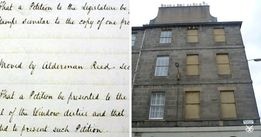 that a Petition to the legislature be
similar to the copy of one pro
Moved by Alderman Reed - sec
that a Petition be presented to the
of the Window duties and that
to present such Petition